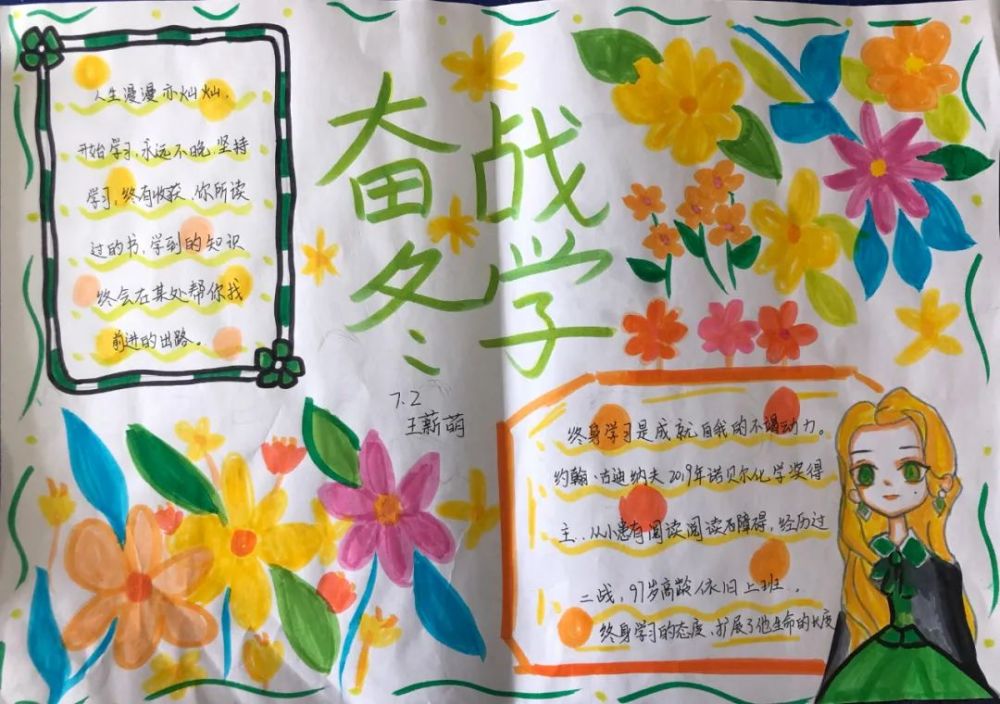 人生漫漫亦灿灿,
开始学习,永远不晚,坚持
学习,终有收获,你所读
过的书,学到的知识
终会在某处帮你找
前进的出路。
奋战
冬学
7.2
王薪萌
终身学习是成就自我的不竭动力。
约翰·古迪纳夫2019年诺贝尔化学奖得
主..从小患有阅读阅读石障碍,经历过
二战,97岁高龄依旧上班..
终身学习的态度,扩展了他生命的长度